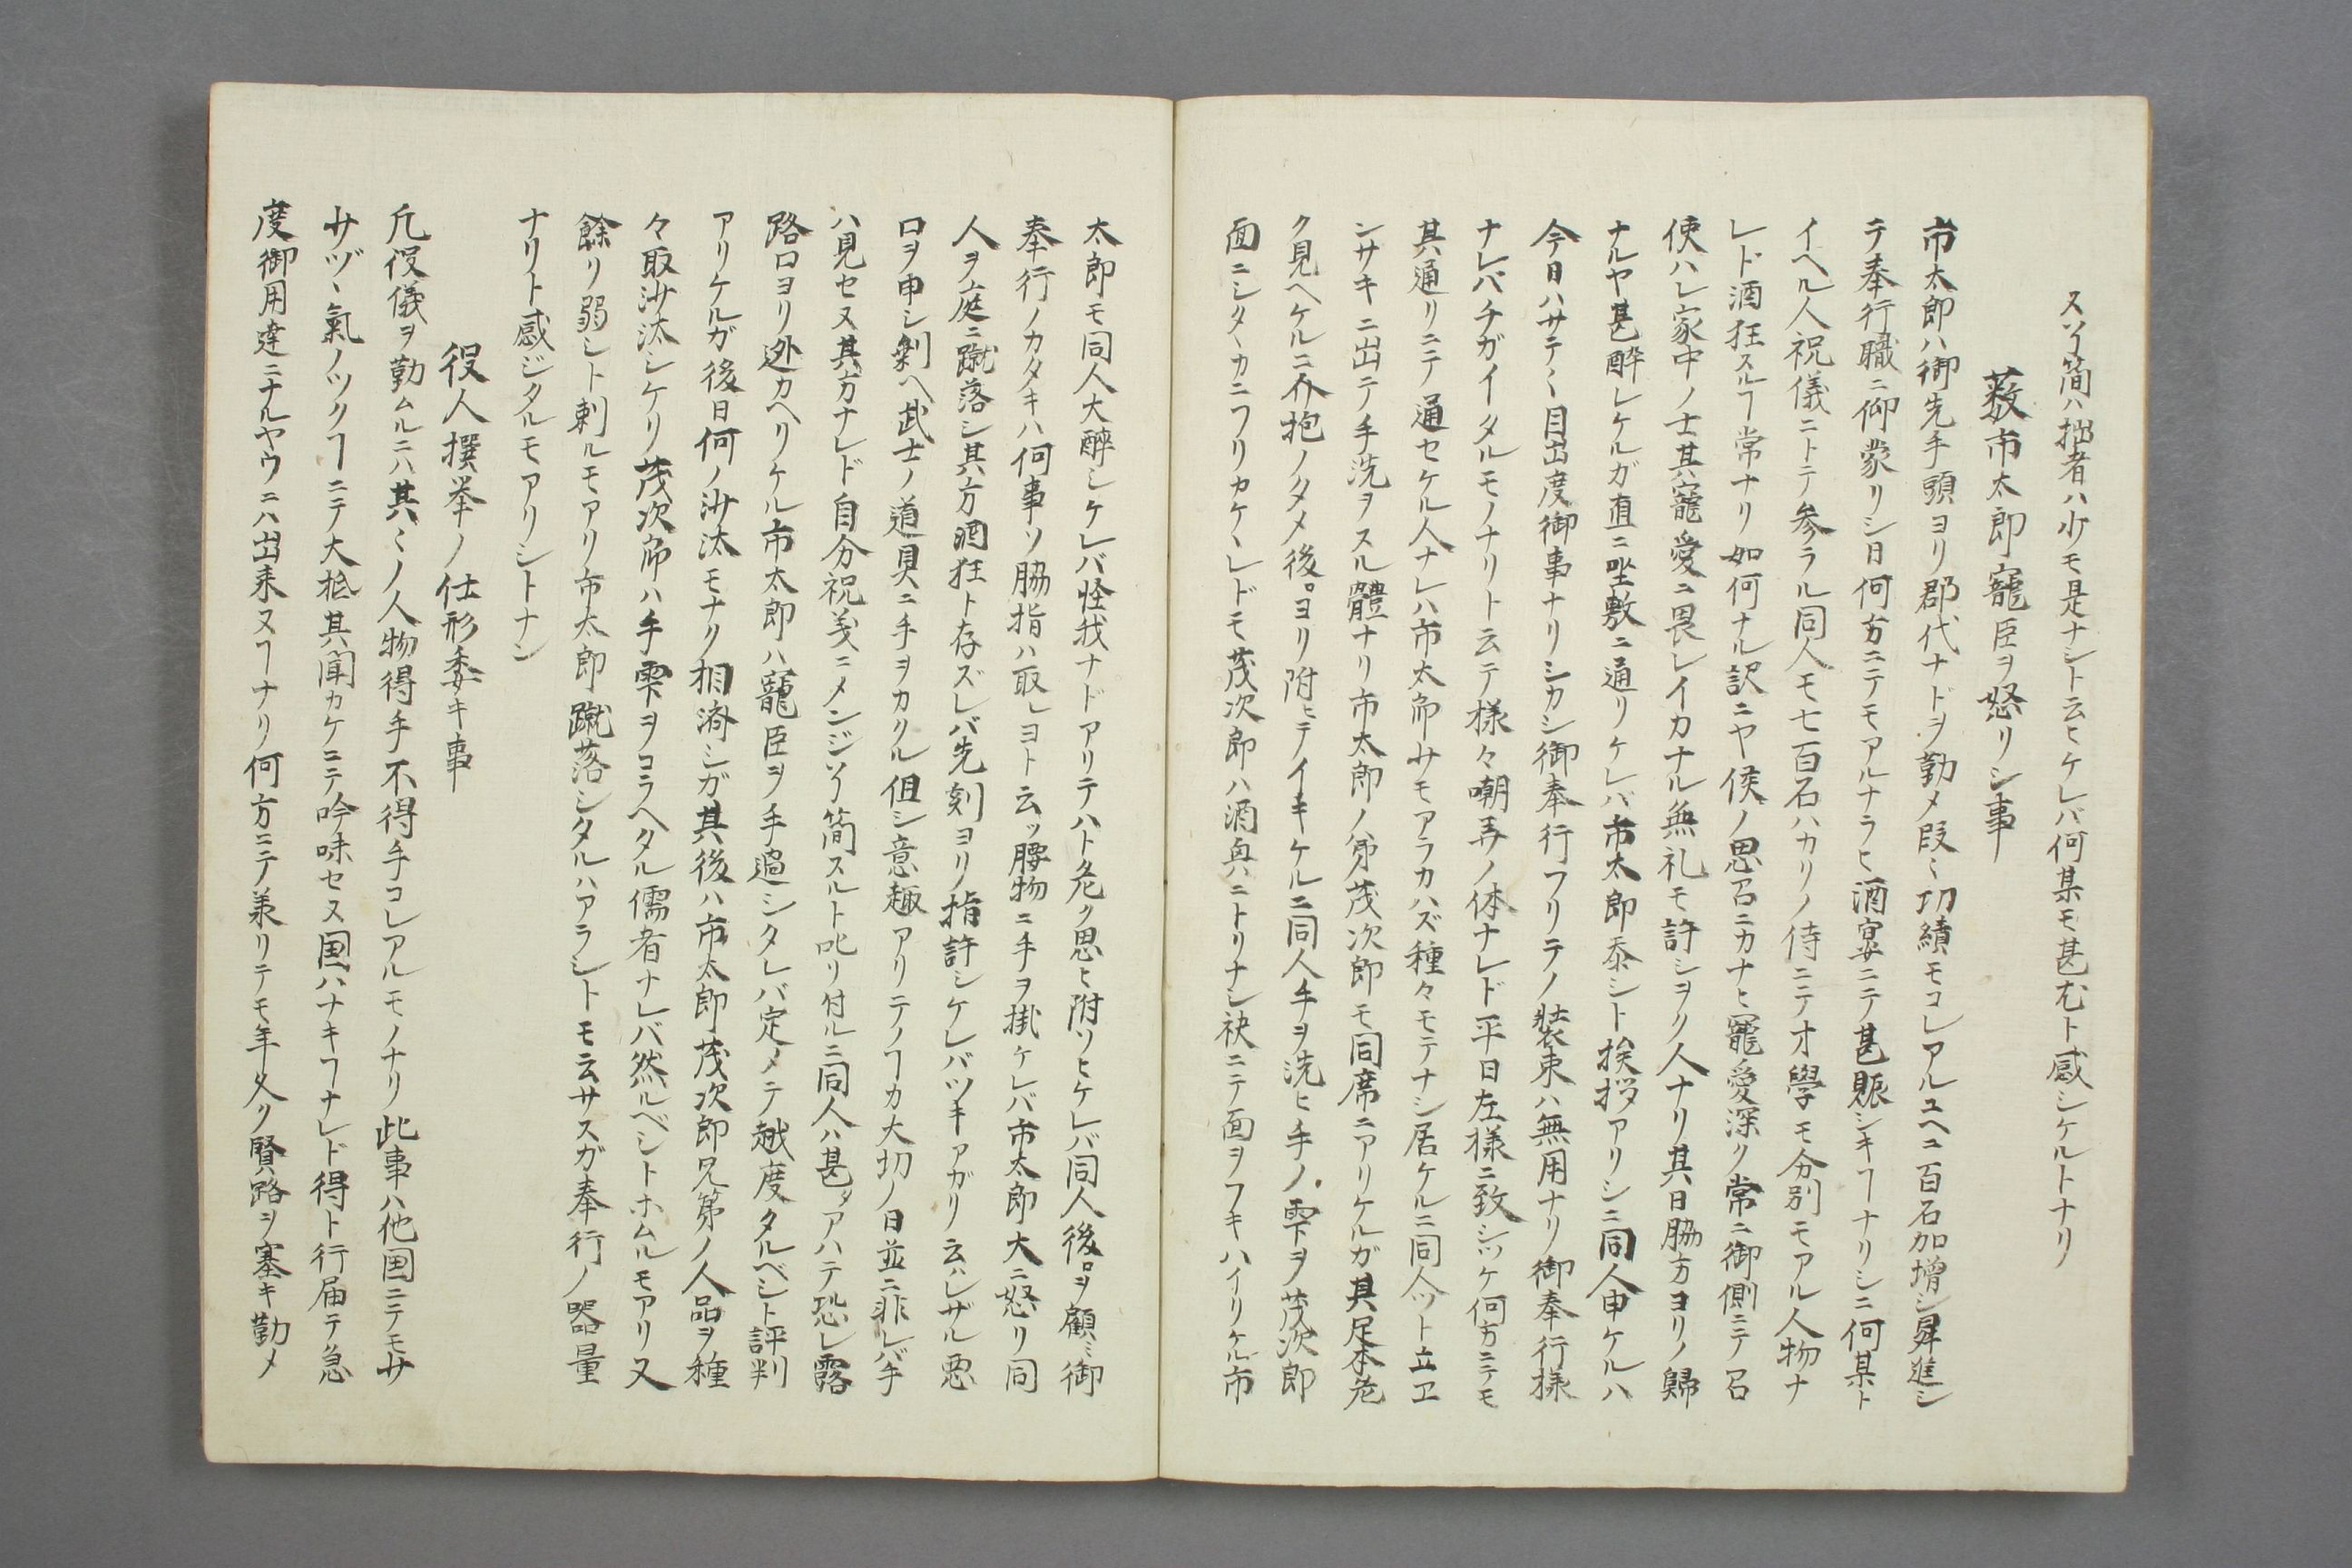 スソウ簡ハ拙者ハ少モ是ナシト云ヒケレバ何某モ甚尤ト感シケルトナリ
薮市太郎寵臣ヲ怒リシ事
市太郎ハ御先手頭ヨリ郡代ナドヲ勤メ段〻功績モコレアルユヘニ百石加増シ昇進シ
テ奉行職ニ仰蒙リシ日何方ニテモアルナラヒ酒宴ニテ甚賑シキヿナリシニ何某ト
イヘル人祝儀ニトテ参ラル同人モ七百石ハカリノ侍ニテ才學モ分別モアル人物ナ
レド酒狂スルヿ常ナリ如何ナル訳ニヤ侯ノ思召ニカナヒ寵愛深ク常ニ御側ニテ召
使ハレ家中ノ士其寵愛ニ畏レイカナル無礼モ許シヲク人ナリ其日脇方ヨリノ歸
ナルヤ甚醉レケルガ直ニ坐敷ニ通リケレバ市太郎忝シト挨拶アリシニ同人申ケルハ
今日ハサテ〱目出度御事ナリシカシ御奉行フリテノ装束ハ無用ナリ御奉行様
ナレバチガイタルモノナリト云テ様々嘲弄ノ体ナレド平日左様ニ致シツケ何方ニテモ
其通リニテ通セケル人ナレハ市太郎サモアラカハズ種々モテナシ居ケルニ同人ツト立ヱ
ンサキニ出テ手洗ヲスル體ナリ市太郎ノ弟茂次郎モ同席ニアリケルガ其足本危
ク見ヘケルニ介抱ノタメ後ロヨリ附ヒテイキケルニ同人手ヲ洗ヒ手ノ雫ヲ茂次郎
面ニシタヽカニフリカケヽレドモ茂次郎ハ酒興ニトリナシ袂ニテ面ヲフキハイリケル市
太郎モ同人大醉シケレバ怪我ナドアリテハト危ク思ヒ附ソヒケレバ同人後ロヲ顧ミ御
奉行ノカタキハ何事ソ脇指ハ取レヨト云ッ腰物ニ手ヲ掛ケレバ市太郎大ニ怒リ同
人ヲ庭ニ蹴落シ其方酒狂ト存ズレバ先刻ヨリ指許シケレバツキアガリ云ハレザル悪
口ヲ申シ剰ヘ武士ノ道具ニ手ヲカクル但シ意趣アリテノヿカ大切ノ日並ニ非レバ手
ハ見セヌ其方ナレド自分祝義ニメンジソウ簡スルト叱リ付ルニ同人ハ甚ダアハテ恐レ露
路口ヨリ迯カヘリケル市太郎ハ寵臣ヲ手過シタレバ定メテ越度タルベシト評判
アリケルガ後日何ノ沙汰モナク相濟シガ其後ハ市太郎茂次郎兄弟ノ人品ヲ種
々取沙汰シケリ茂次郎ハ手雫ヲコラヘタル儒者ナレバ然ルベシトホムルモアリ又
餘リ弱シト刺ルモアリ市太郎蹴落シタルハアラシトモ云サスガ奉行ノ器量
ナリト感ジタルモアリシトナン
役人撰挙ノ仕形委キ事
凡役儀ヲ勤ムルニハ其〻ノ人物得手不得手コレアルモノナリ此事ハ他国ニテモサ
サヅヽ氣ノツクヿニテ大抵其聞カケニテ吟味セヌ国ハナキヿナレド得ト行届テ急
度御用達ニナルヤウニハ出来ヌヿナリ何方ニテ義リテモ年久ク賢路ヲ塞キ勤メ